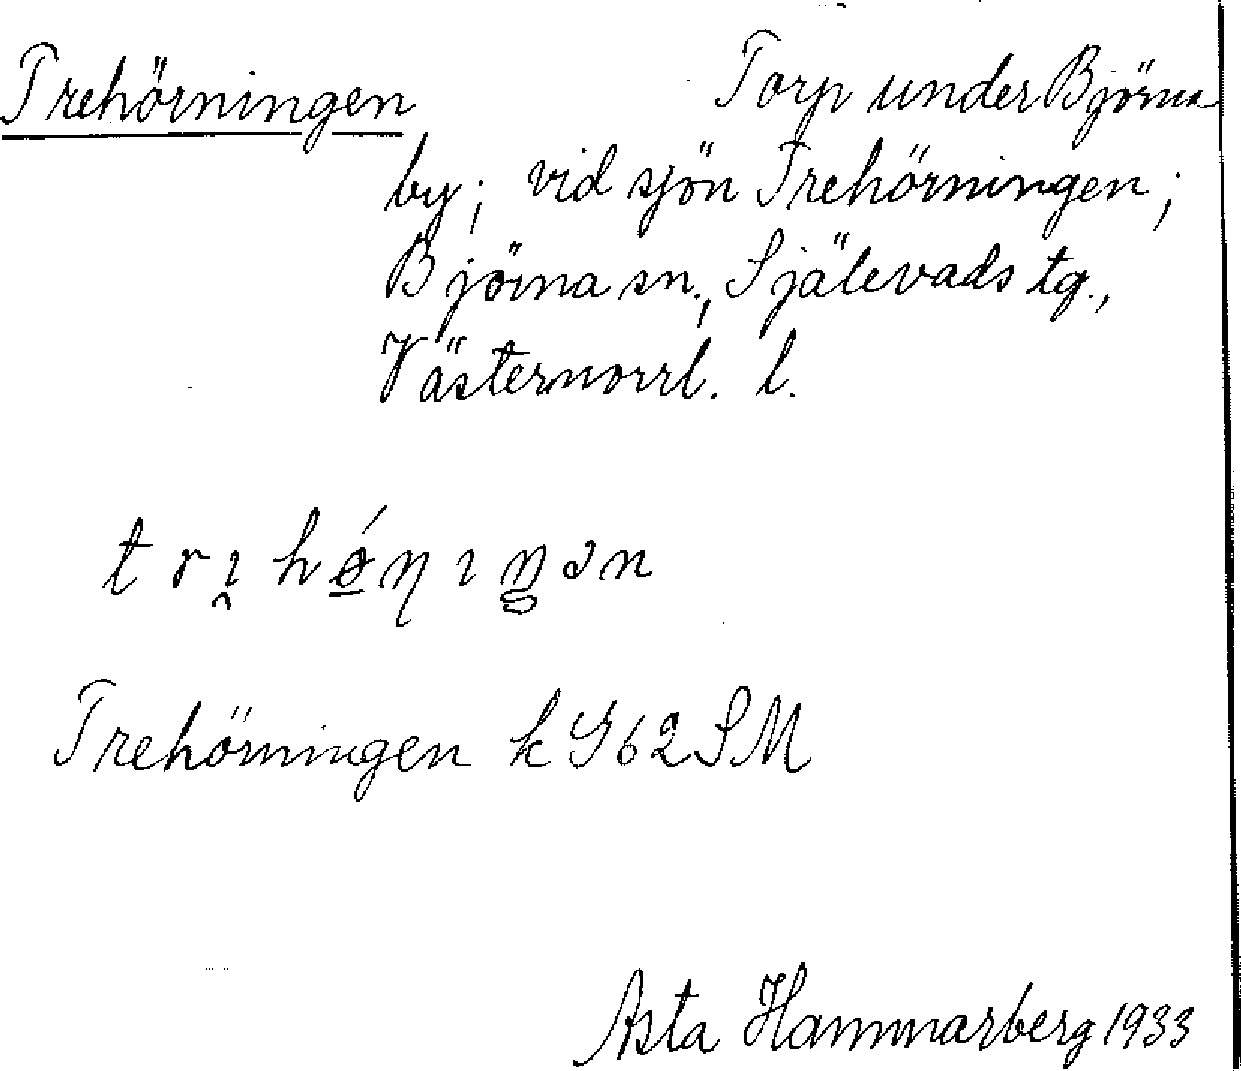 Trehörningen Torp under Björna
by; vid sjön Trehörningen;
Björna sn., Själevads tg.,
Västernorrl. l.
Trehörningen k G62SM
Asta Hammarberg 1933